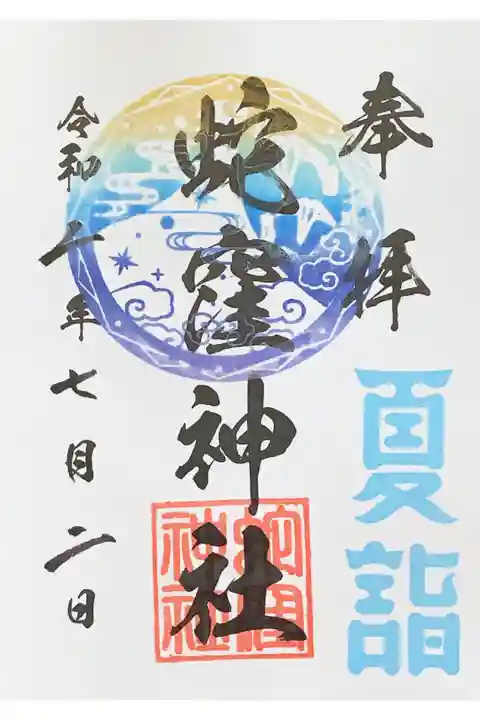 奉拝
夏詣
蛇窪神社
蛇窪
神社
令和七年七月二日